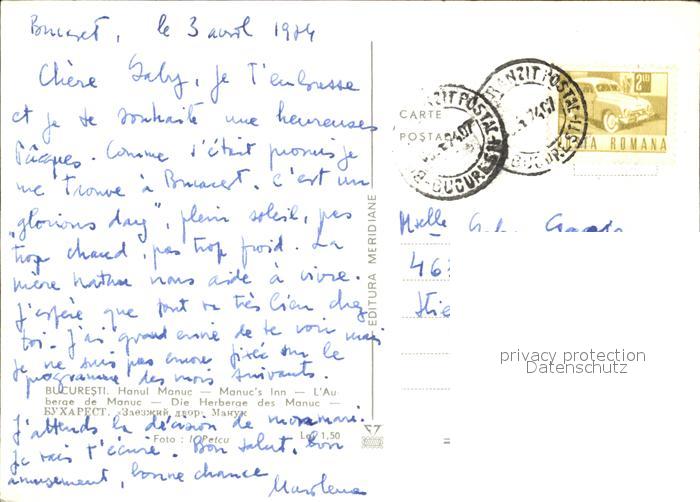 Bucarest, le 3 avril 1974
Chère Gaby, je t'embrasse
et je te souhaite une heureuses
Pâques. Comme c'était promis je
me trouve à Bucarest. C'est un
„glorious day", plein soleil, pas
trop chaud, pas trop froid. La
mère nature nous aide à vivre.
J'espère que tout va très bien chez
toi. J'ai grand envie de te voir mais
je ne suis pas encore fixée sur le
programme des mois suivants.
BUCUREȘTI. Hanul Manuc — Manuc's Inn — L'Au-
berge de Manuc — Die Herberge des Manuc —
БУХАРЕСТ. «Заезжий двор» Манук
J'attends la décision de mon mari.
Foto : I. Petcu Lei 1,50
Je vais t'écrire. Bon salut, bon
amusement, bonne chance
EDITURA MERIDIANE
CARTE
POSTA
TRANZIT POSTAL
BUCUREȘTI
TRANZIT POSTAL
BUCUREȘTI
2 LEI
POSTA ROMANA
Mselle
46
privacy protection
Datenschutz